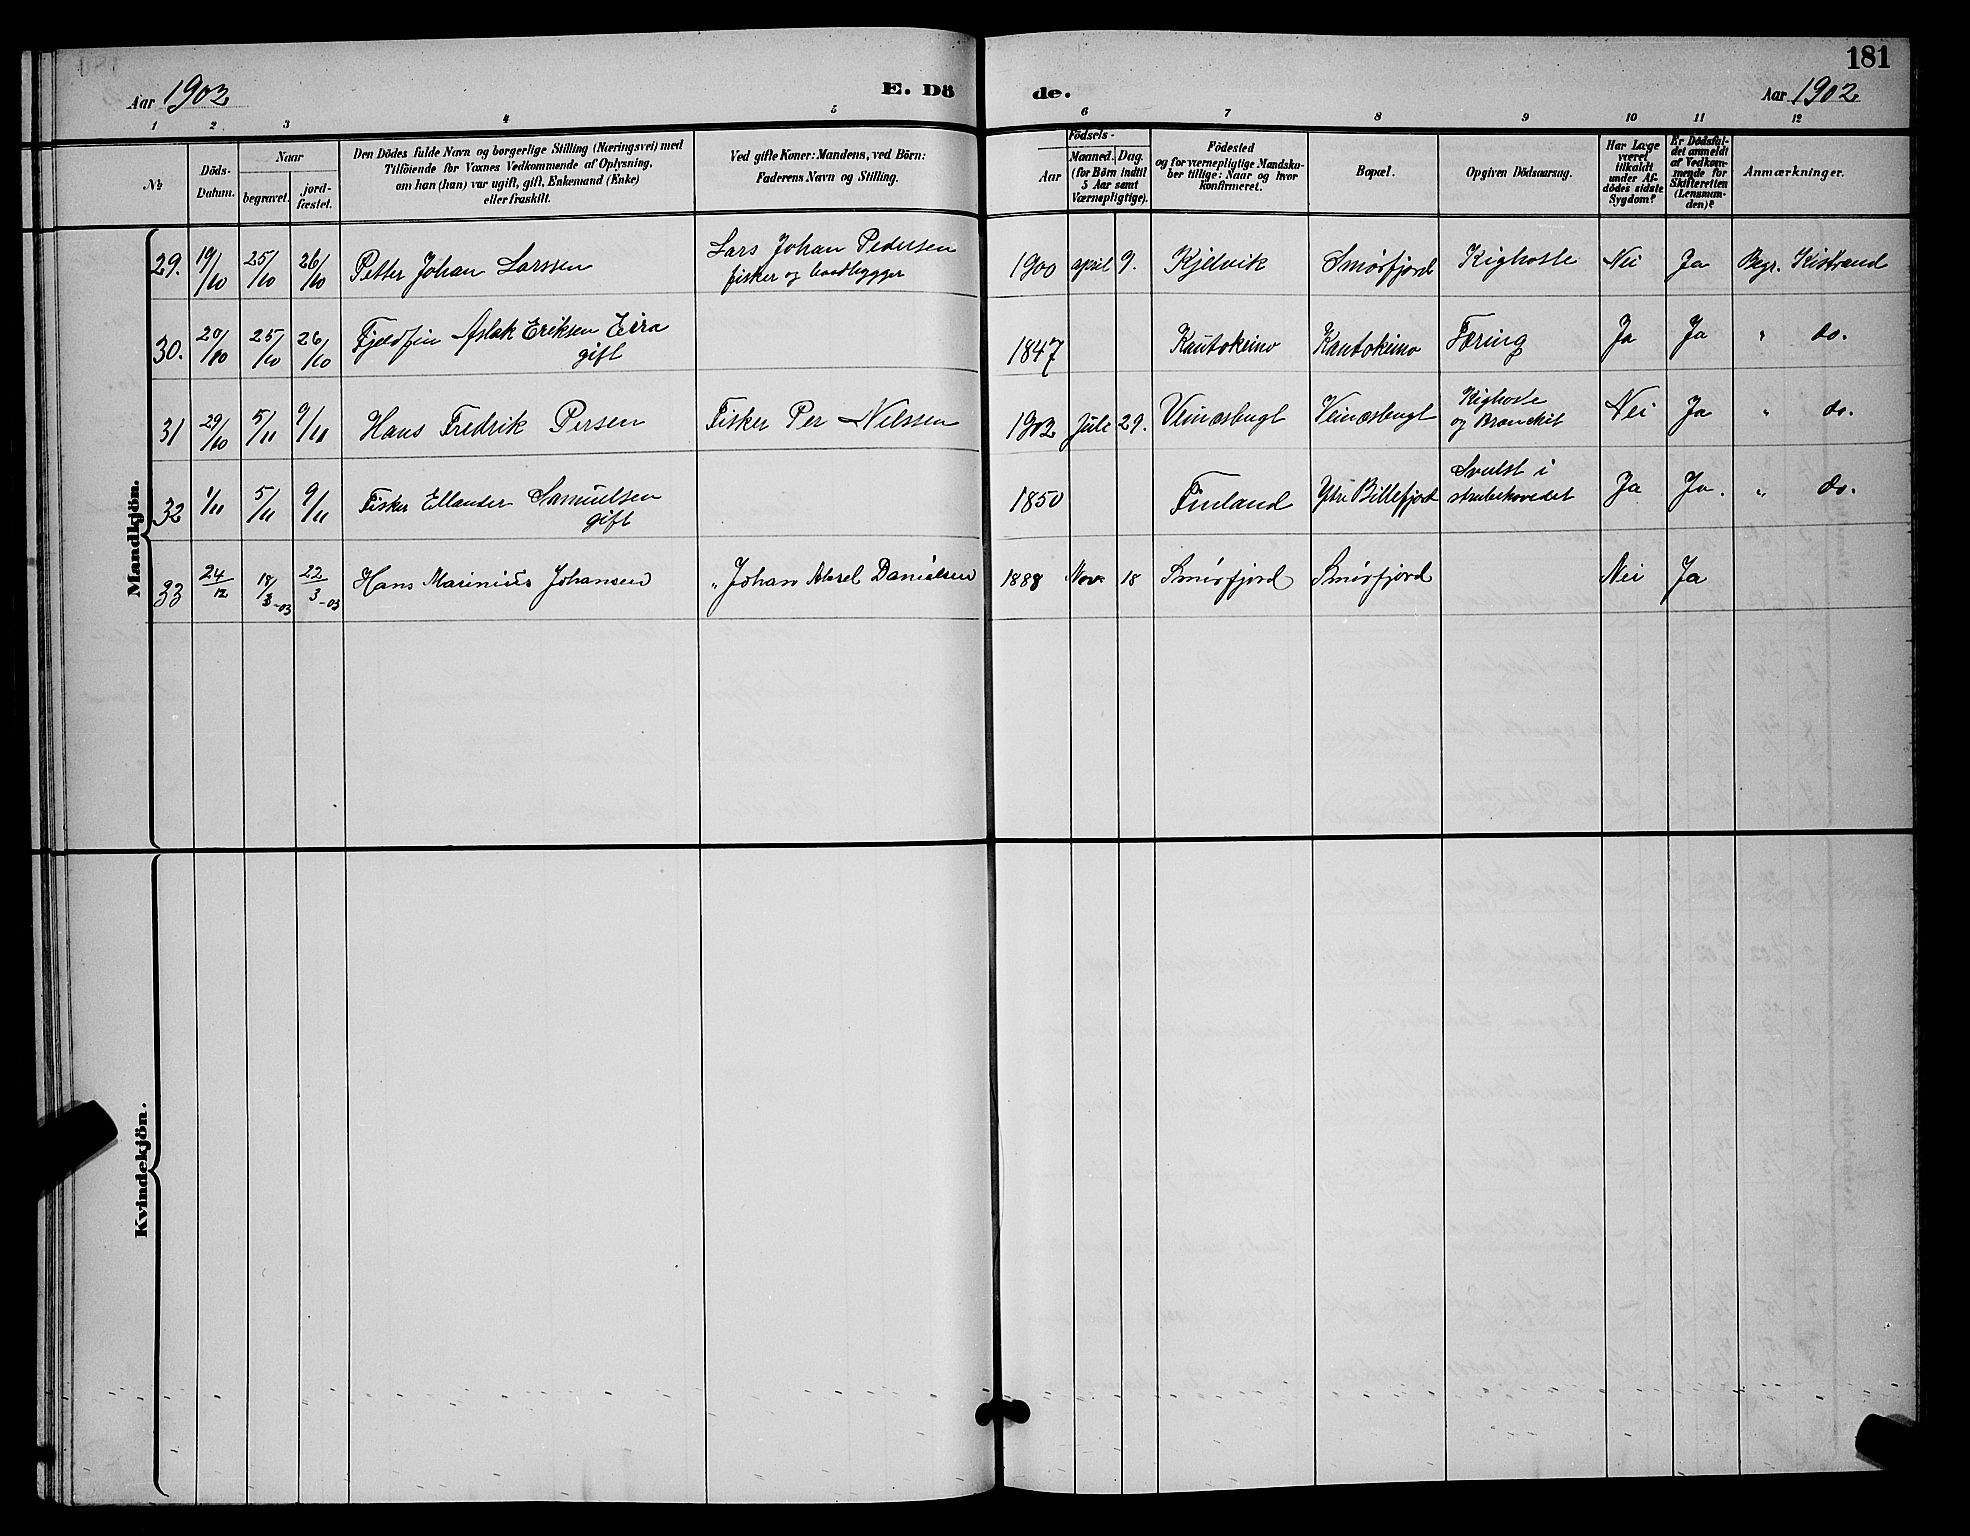 181
Aar 1902 E. Dö de. Aar 1902
1 2 3 4 5 6 7 8 9 10 11 12
№ Döds-Datum. Naar begravet. jord-fæstet.
Den Dödes fulde Navn og borgerlige Stilling (Næringsvei) med
Tilföiende for Voxnes Vedkommende af Oplysning,
om han (hun) var ugift, gift, Enkemand (Enke)
eller fraskilt.
Ved gifte Koner: Mandens, ved Börn:
Faderens Navn og Stilling.
Födsels-
Aar Maaned. Dag.
(for Börn indtil
5 Aar samt
Værnepligtige).
Födested
og for værnepligtige Mandska-
ber tillige: Naar og hvor
konfirmeret.
Bopæl.
Opgiven Dödsaarsag.
Har Læge
været
tilkaldt
under Af-
dödes sidste
Sygdom?
Er Dödsfal-
det anmeldt
af Vedkom-
mende for
Skifteretten
(Lensman-
den)?
Anmærkninger.
Mandkjön.
29. 19/10 25/10 26/10 Petter Johan Larssen Lars Johan Pedersen
fisker og baadbygger 1900 april 9. Kjelvik Smörfjord Kighoste Nei Ja Begr. Kistrand
30. 20/10 25/10 26/10 Fjeldfin Aslak Eriksen Eira
gift 1847 Kautokeino Kautokeino Tæring Ja Ja " do.
31 29/10 5/11 9/11 Hans Fredrik Persen Fisker Per Nilssen 1902 Juli 29. Veinæsbugt Veinæsbugt Kighoste
og Bronchit Nei Ja " do.
32 1/11 5/11 9/11 Fisker Ellander Samuelsen
gift 1850 Finland Ytre Billefjord Svulst i
strubehovedet Ja Ja. " do.
33 24/12 18/3-03 22/3-03 Hans Marinius Johansen " Johan Danielsen 1888 Nov. 18 Smörfjord Smörfjord Nei Ja
Kvindekjön.